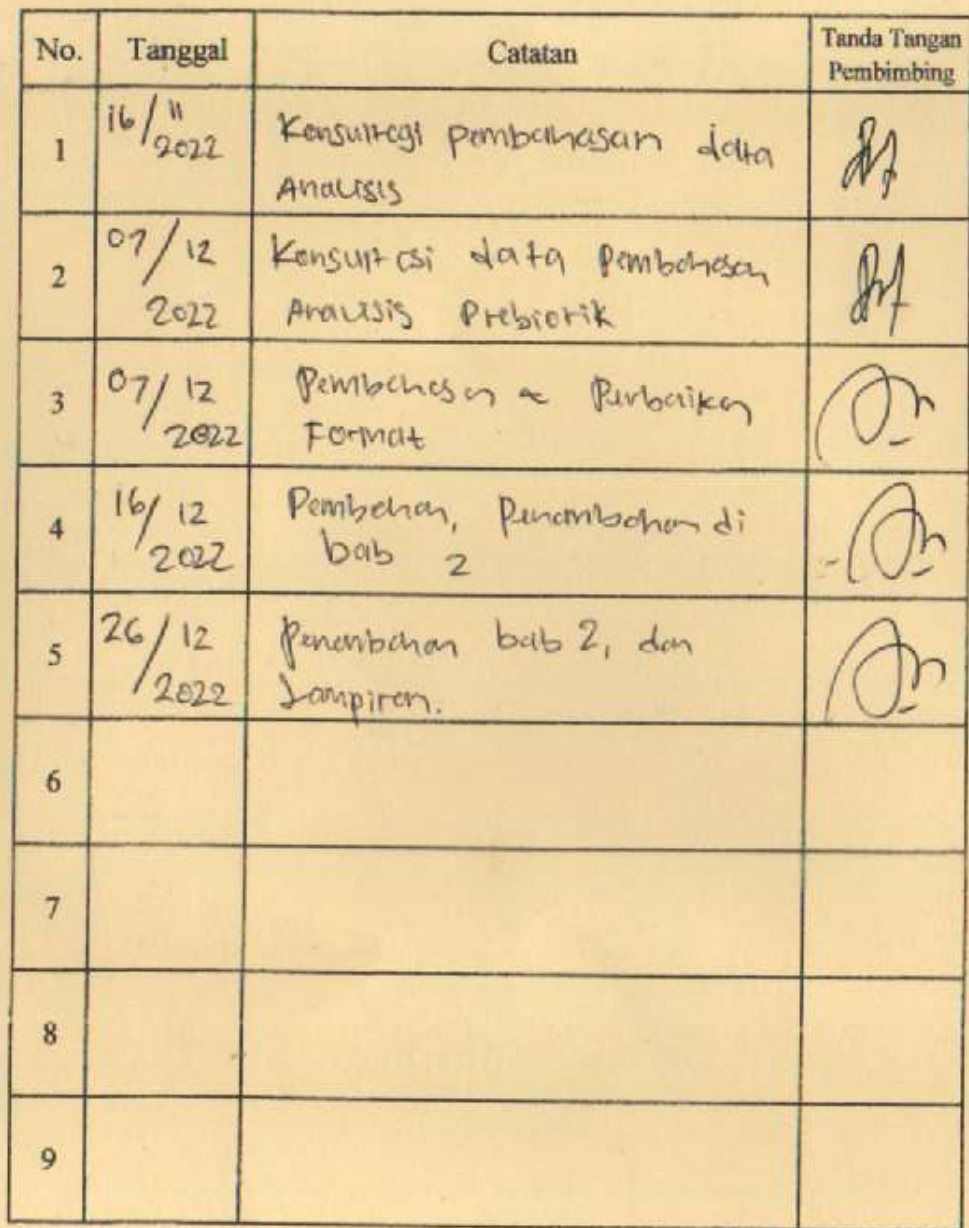 No. Tanggal Catatan Tanda Tangan
Pembimbing
1 16/11 Konsultasi pembahasan data
2022 Analisis
2 07/12 Konsultasi data Pembahasan
2022 Analisis Prebiotik
3 07/12 Pembahasan & Perbaikan
2022 Format
4 16/12 Pembahan, Penambahan di
2022 bab 2
5 26/12 Penambahan bab 2, dan
2022 Lampiran.
6
7
8
9